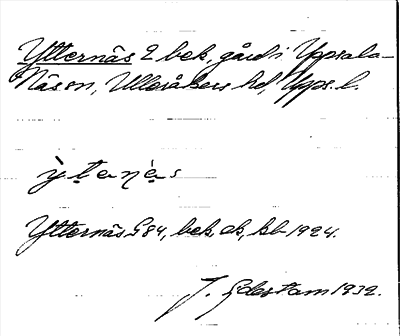 Ytternäs 2 bek, gård i Uppsala-
Näs sn, Ulleråkers hd, Upps. l.
ỳt̤enés
Ytternäs G 84, bek, ek, kb 1924.
J. Gderstam 1932.